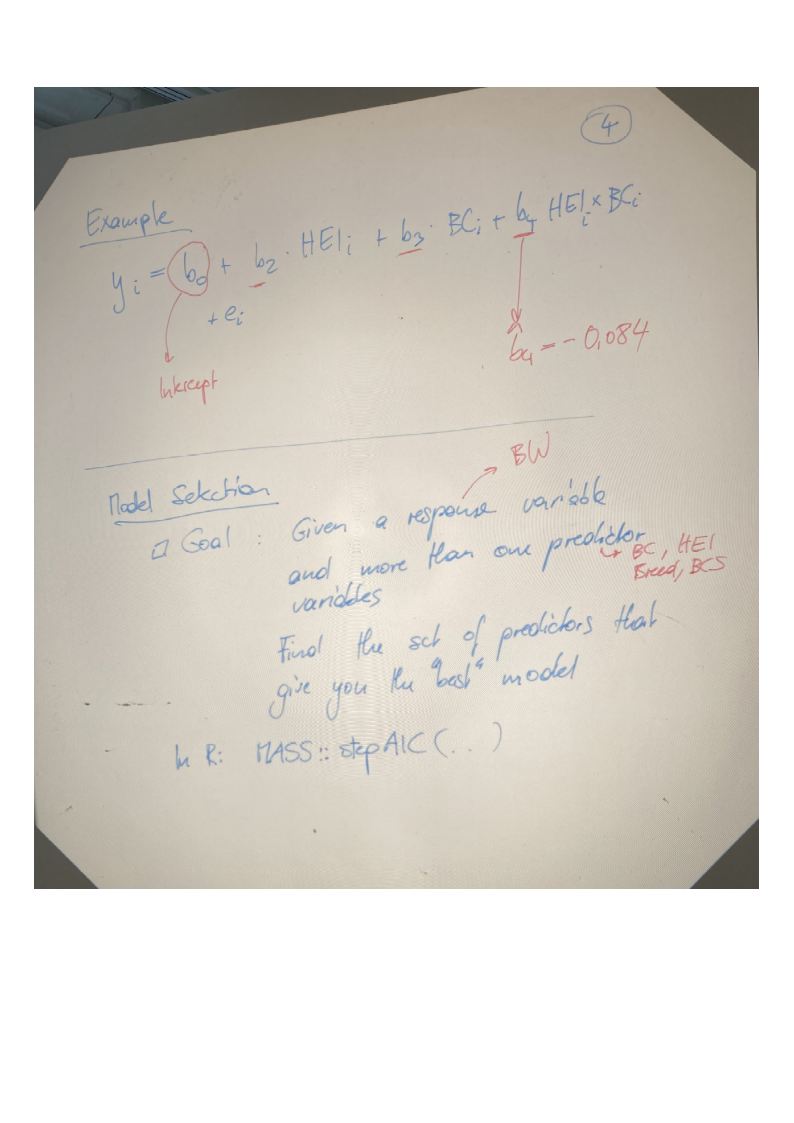 4
Example
y i = b0 + b2 · HEI i + b3 · BC i + b4 HEI i × BC i
+ e i
Intercept
b4 = - 0,084
BW
Model Selection
□ Goal : Given a response variable
and more than one predictor
BC, HEI
Breed, BCS
variables
Find the set of predictors that
give you the "best" model
In R: MASS::stepAIC(..)